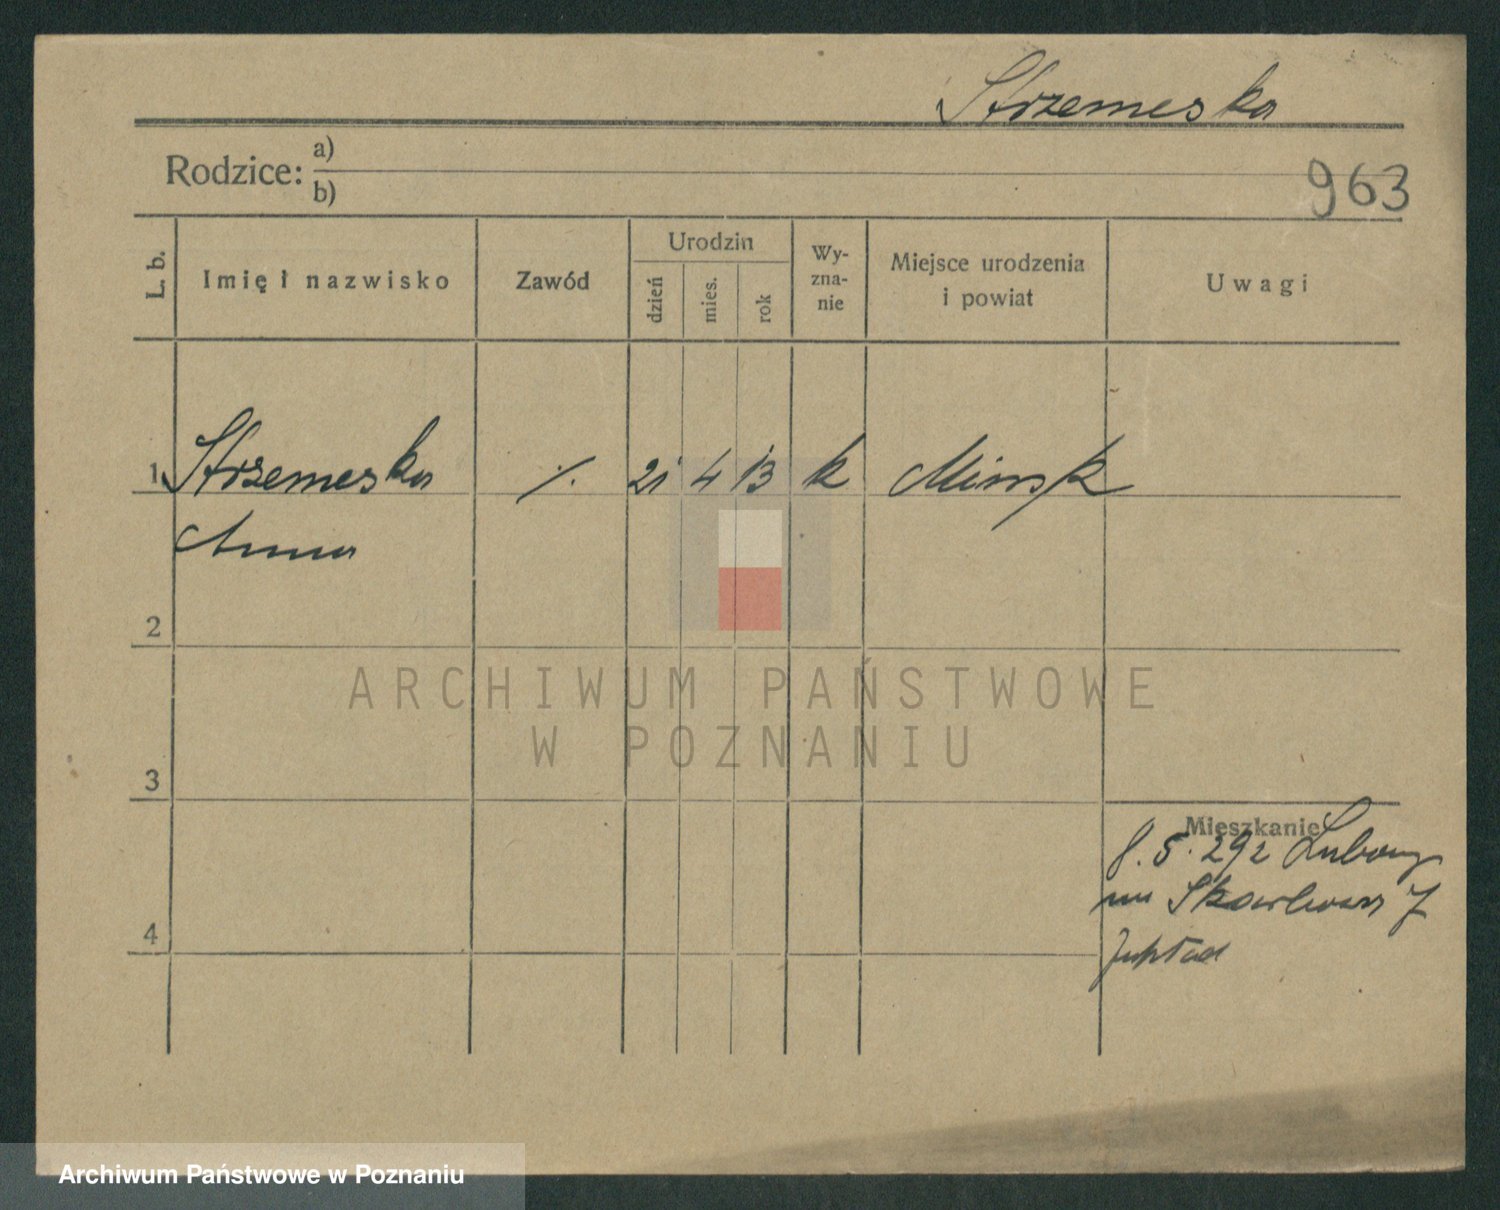 Strzemeska
Rodzice: a)
b)
963
L. b.
Imię i nazwisko
Zawód
Urodzin
dzień
mies.
rok
Wy-
zna-
nie
Miejsce urodzenia
i powiat
Uwagi
1 Strzemeska ./. 21 4 13 k Minsk
Anna
2
3
4
Mieszkanie
8.5.292 Lubony
ARCHIWUM PAŃSTWOWE
W POZNANIU
Archiwum Państwowe w Poznaniu